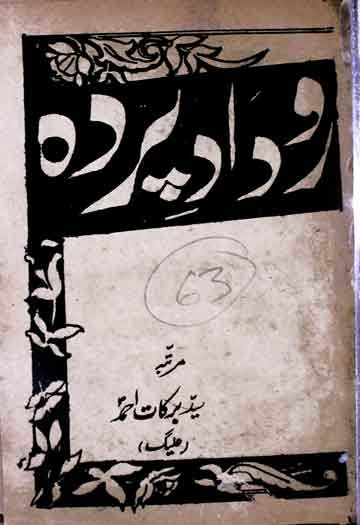 رودادِ پردہ
63
مرتبہ
سید برکات احمد
(علیگ)